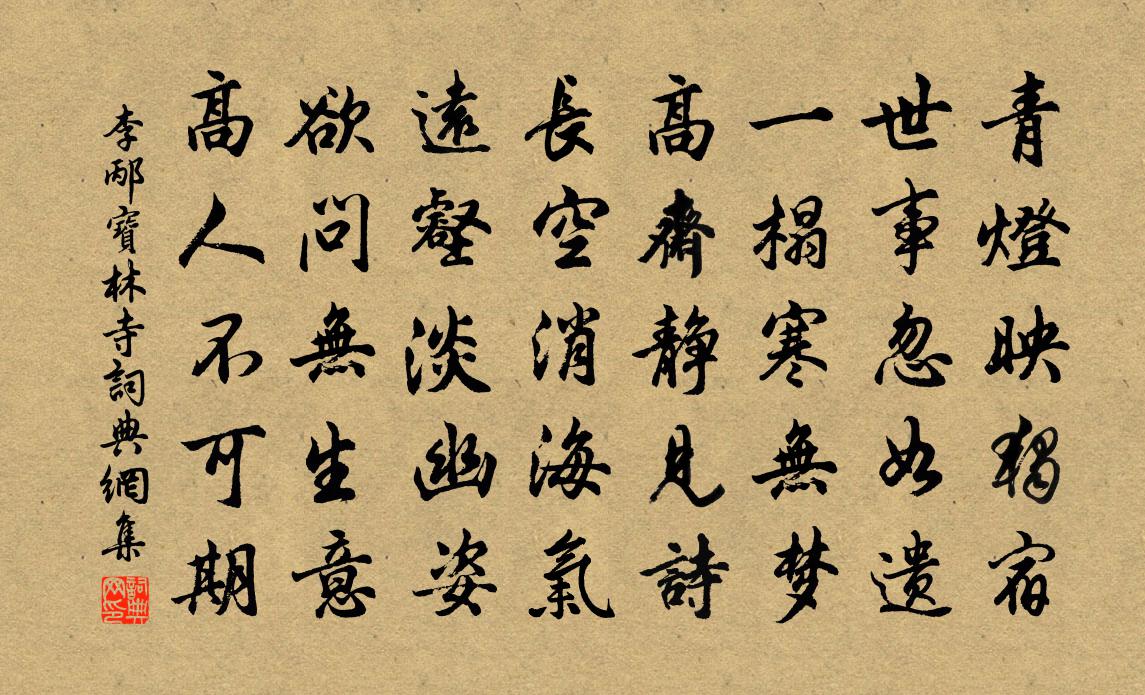 青燈映獨宿
世事忽如遺
一榻寒無梦
高齋静見詩
長空消海氣
遠壑淡幽姿
欲問無生意
高人不可期
李邴寶林寺詞典網集
詞典网印